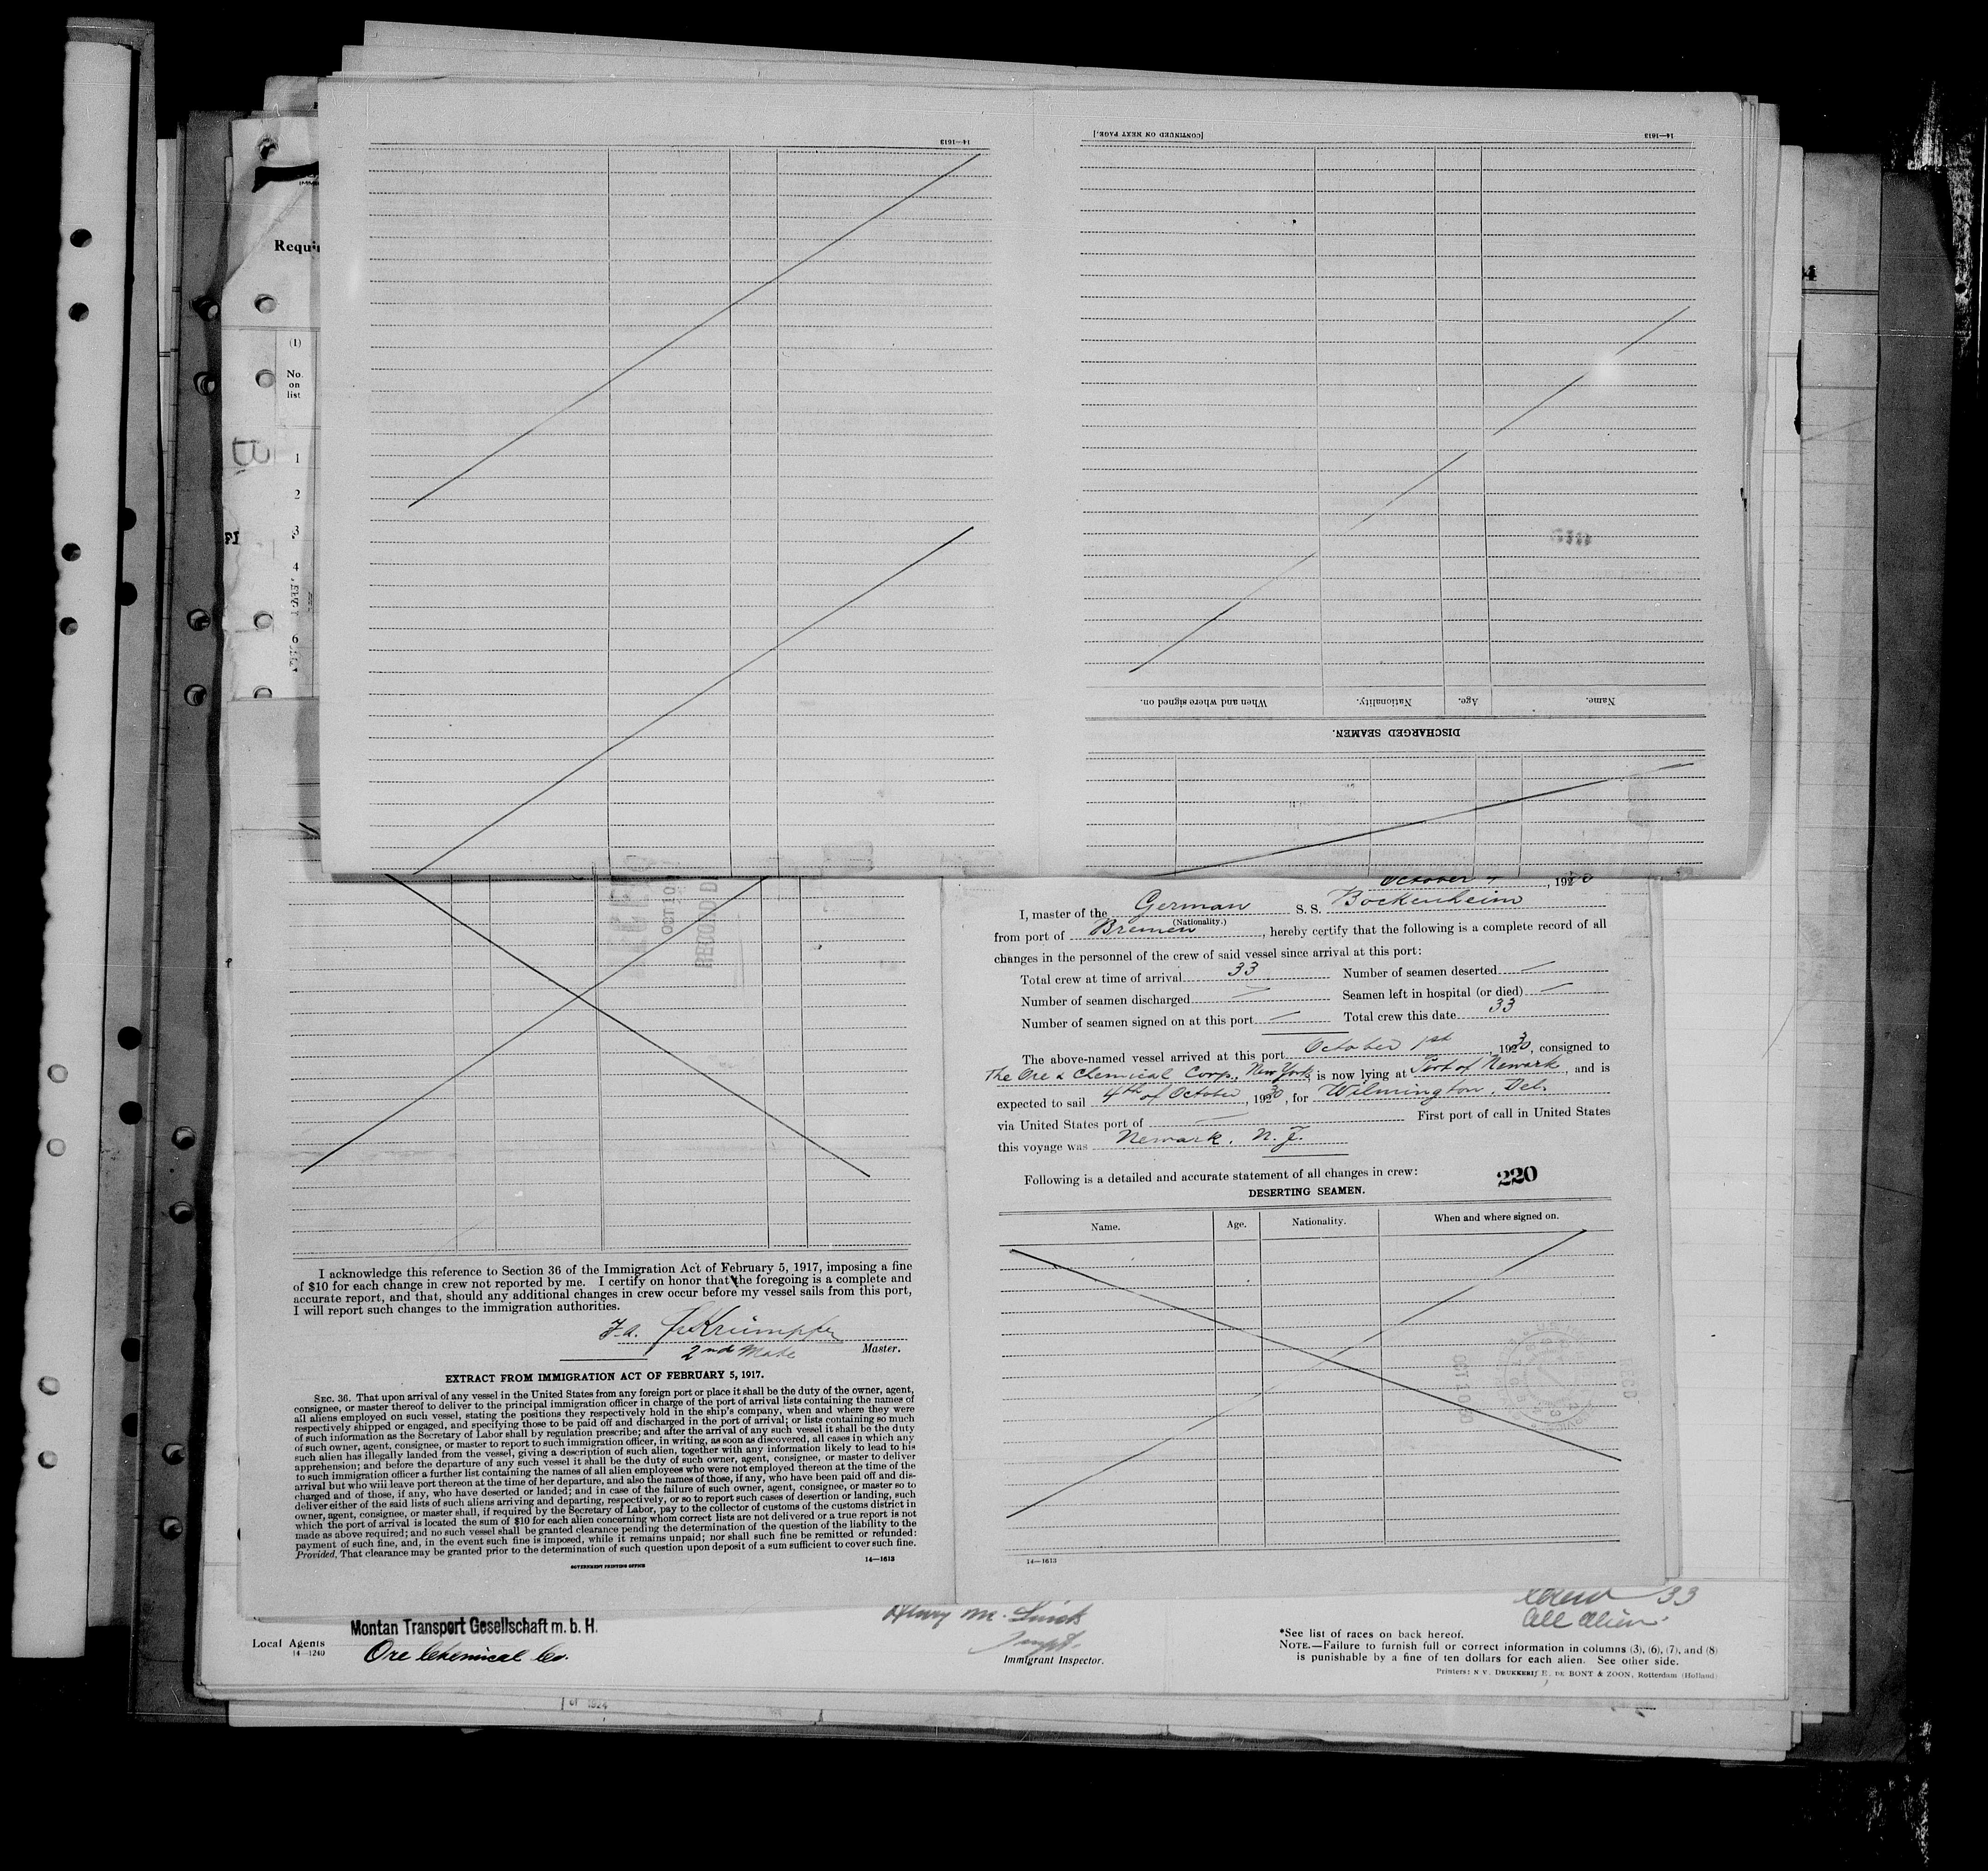 14—1613
[CONTINUED ON NEXT PAGE.]
14—1613
Requi
(1)
No.
on
list
1
2
3
4
6
When and where signed on.
Nationality.
Age.
Name.
DISCHARGED SEAMEN.
RECORD D
October 4, 1930
I, master of the German S. S. Bockenheim
(Nationality.)
from port of Bremen, hereby certify that the following is a complete record of all
changes in the personnel of the crew of said vessel since arrival at this port:
Total crew at time of arrival 33 Number of seamen deserted —
Number of seamen discharged — Seamen left in hospital (or died) —
Number of seamen signed on at this port — Total crew this date 33
The above-named vessel arrived at this port October 1st, 1930, consigned to
The Ore & Chemical Corp., New York, is now lying at Port of Newark, and is
expected to sail 4th of October, 1930, for Wilmington, Del.
via United States port of — First port of call in United States
this voyage was Newark, N. J.
Following is a detailed and accurate statement of all changes in crew:
220
DESERTING SEAMEN.
Name. Age. Nationality. When and where signed on.
14—1613
I acknowledge this reference to Section 36 of the Immigration Act of February 5, 1917, imposing a fine
of $10 for each change in crew not reported by me. I certify on honor that the foregoing is a complete and
accurate report, and that, should any additional changes in crew occur before my vessel sails from this port,
I will report such changes to the immigration authorities.
2nd Mate Master.
EXTRACT FROM IMMIGRATION ACT OF FEBRUARY 5, 1917.
SEC. 36. That upon arrival of any vessel in the United States from any foreign port or place it shall be the duty of the owner, agent,
consignee, or master thereof to deliver to the principal immigration officer in charge of the port of arrival lists containing the names of
all aliens employed on such vessel, stating the positions they respectively hold in the ship's company, when and where they were
respectively shipped or engaged, and specifying those to be paid off and discharged in the port of arrival; or lists containing so much
of such information as the Secretary of Labor shall by regulation prescribe; and after the arrival of any such vessel it shall be the duty
of such owner, agent, consignee, or master to report to such immigration officer, in writing, as soon as discovered, all cases in which any
such alien has illegally landed from the vessel, giving a description of such alien, together with any information likely to lead to his
apprehension; and before the departure of any such vessel it shall be the duty of such owner, agent, consignee, or master to deliver
to such immigration officer a further list containing the names of all alien employees who were not employed thereon at the time of the
arrival but who will leave port thereon at the time of her departure, and also the names of those, if any, who have been paid off and dis-
charged and of those, if any, who have deserted or landed; and in case of the failure of such owner, agent, consignee, or master so to
deliver either of the said lists of such aliens arriving and departing, respectively, or so to report such cases of desertion or landing, such
owner, agent, consignee, or master shall, if required by the Secretary of Labor, pay to the collector of customs of the customs district in
which the port of arrival is located the sum of $10 for each alien concerning whom correct lists are not delivered or a true report is not
made as above required; and no such vessel shall be granted clearance pending the determination of the question of the liability to the
payment of such fine, and, in the event such fine is imposed, while it remains unpaid; nor shall such fine be remitted or refunded:
Provided, That clearance may be granted prior to the determination of such question upon deposit of a sum sufficient to cover such fine.
GOVERNMENT PRINTING OFFICE
14—1613
Montan Transport Gesellschaft m. b. H.
Local Agents
14—1240
Ore Chemical Co.
Henry M.
Immigrant Inspector.
33
All Alien
*See list of races on back hereof.
NOTE.—Failure to furnish full or correct information in columns (3), (6), (7), and (8)
is punishable by a fine of ten dollars for each alien. See other side.
Printers: N.V. DRUKKERIJ H. DE BONT & ZOON, Rotterdam (Holland)
of 1924